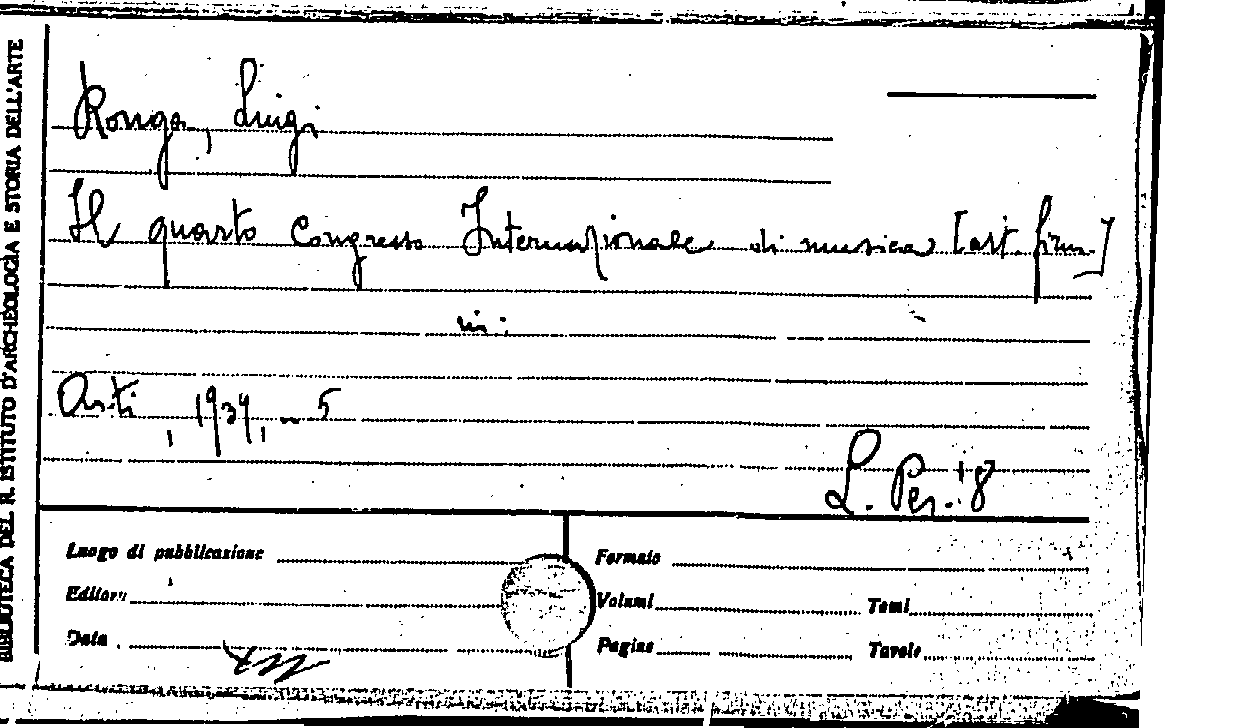 BIBLIOTECA DEL R. ISTITUTO D'ARCHEOLOGIA E STORIA DELL'ARTE
Ronga, Luigi
Il quarto Congresso Internazionale di musica [art. firm.]
in:
Arti, 1939, n 5
L. Per. 18
Luogo di pubblicazione Formato
Editore Volumi Tomi
Data Pagine Tavole